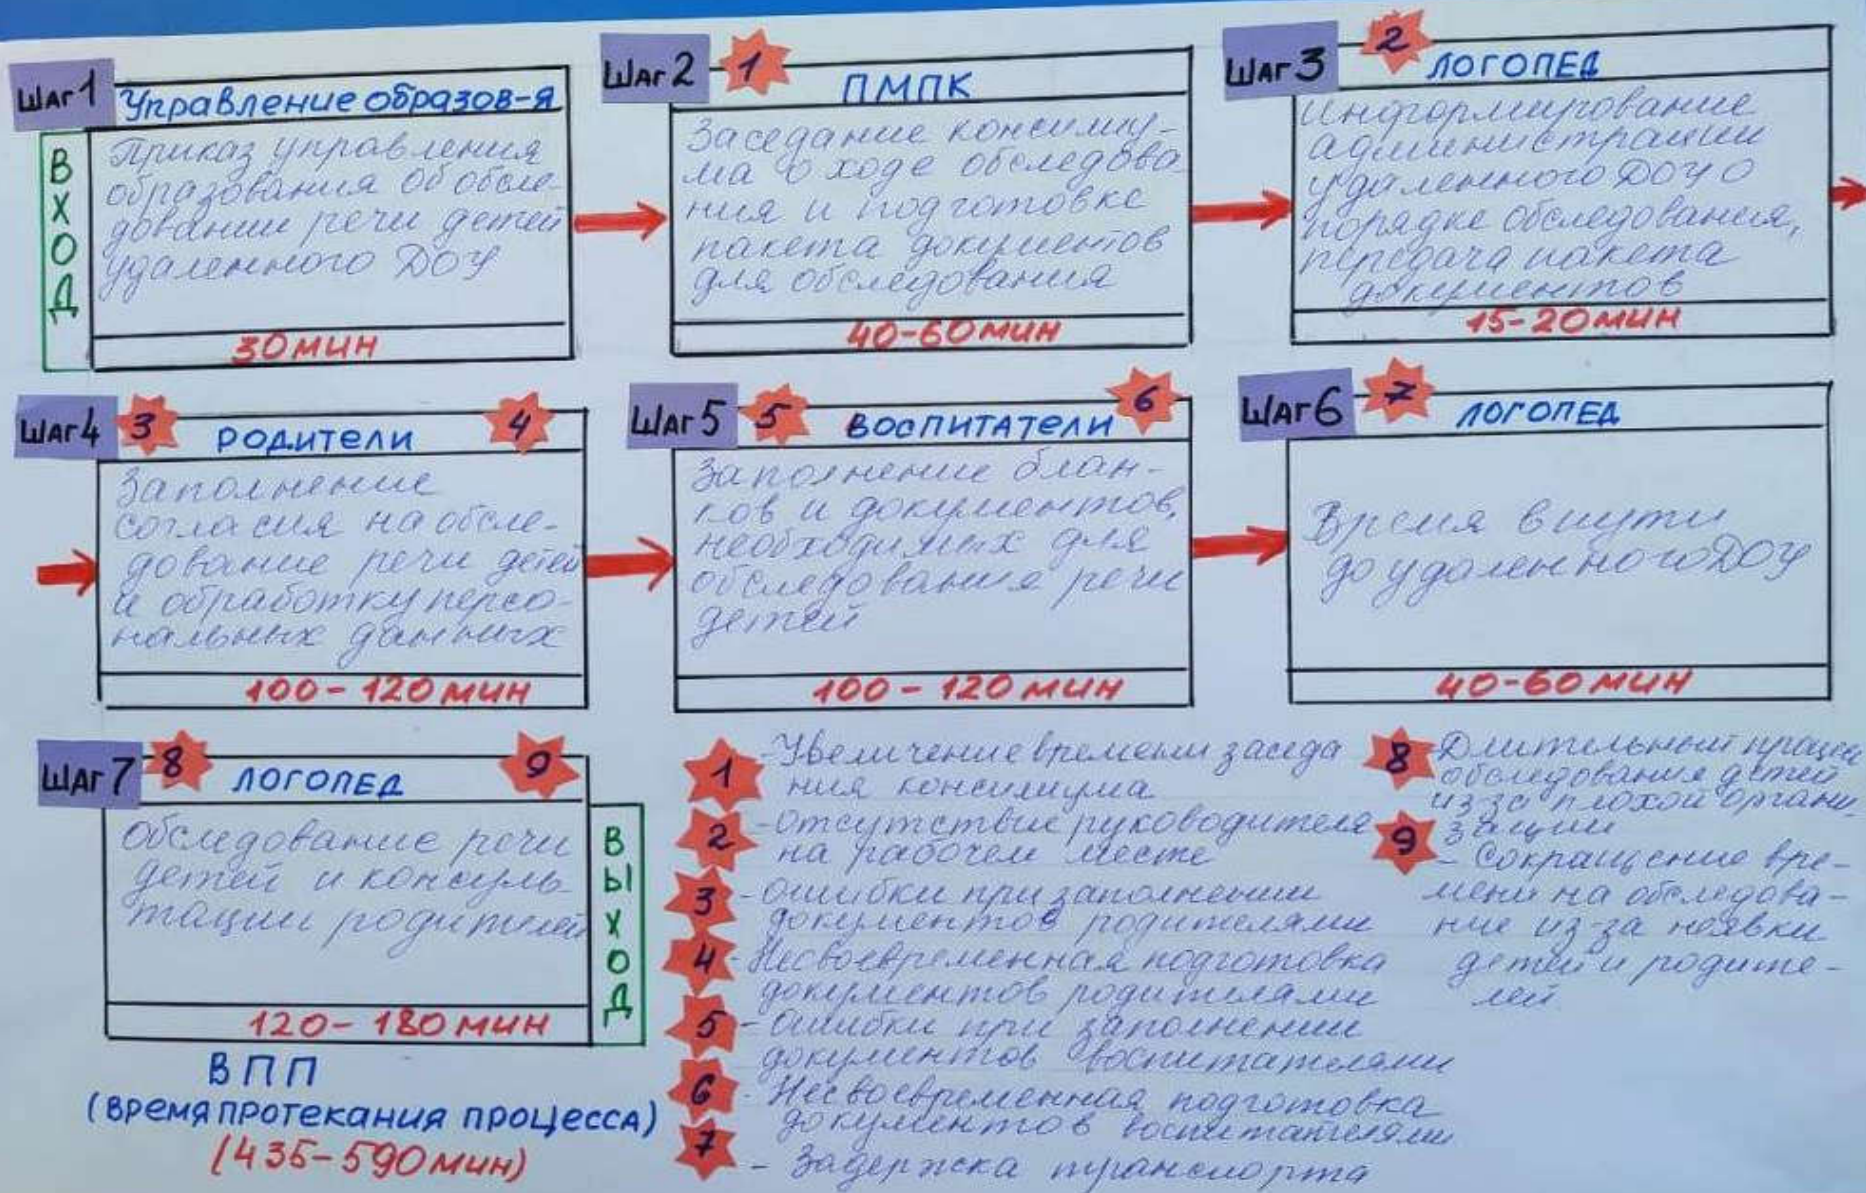 Шаг 1
Управление образов-я
ВХОД
Приказ управления
образования об обсле-
довании речи детей
удаленного ДОУ
30 мин
Шаг 2
1
ПМПК
Заседание консилиу-
ма о ходе обследова
ния и подготовке
пакета документов
для обследования
40-60 мин
Шаг 3
2
ЛОГОПЕД
Информирование
администрации
удаленного ДОУ о
порядке обследования,
передача пакета
документов
15-20 мин
Шаг 4
3
РОДИТЕЛИ
4
Заполнение
согласия на обсле-
дование речи детей
и обработку персо-
нальных данных
100-120 мин
Шаг 5
5
ВОСПИТАТЕЛИ
6
Заполнение блан-
ков и документов,
необходимых для
обследования речи
детей
100-120 мин
Шаг 6
7
ЛОГОПЕД
Время в пути
до удаленного ДОУ
40-60 мин
Шаг 7
8
ЛОГОПЕД
9
Обследование речи
детей и консуль
тации родителей
ВЫХОД
120-180 мин
ВПП
(время протекания процесса)
(435-590 мин)
1 - Увеличение времени заседа
ния консилиума
2 - Отсутствие руководителя
на рабочем месте
3 - Ошибки при заполнении
документов родителями
4 - Несвоевременная подготовка
документов родителями
5 - Ошибки при заполнении
документов воспитателями
6 - Несвоевременная подготовка
документов воспитателями
7 - Задержка транспорта
8 - Длительный процесс
обследования детей
из за плохой органи
зации
9 - Сокращение вре-
мени на обследова-
ние из-за неявки
детей и родите-
лей